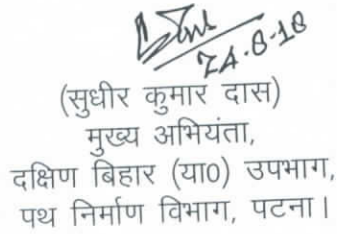 24.8.18
(सुधीर कुमार दास)
मुख्य अभियंता,
दक्षिण बिहार (या0) उपभाग,
पथ निर्माण विभाग, पटना।